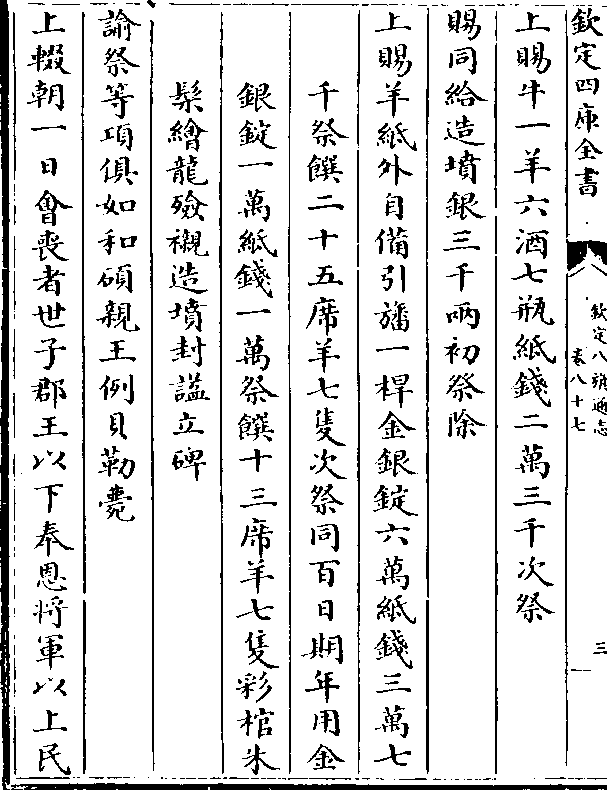 欽定四庫全書
欽定八旗通志
卷八十七
三
上賜牛一羊六酒七瓶紙錢二萬三千次祭
賜同給造墳銀三千兩初祭除
上賜羊紙外自備引旛一桿金銀錠六萬紙錢三萬七
千祭饌二十五席羊七隻次祭同百日期年用金
銀錠一萬紙錢一萬祭饌十三席羊七隻彩棺朱
髹繪龍殮襯造墳封諡立碑
諭祭等項俱如和碩親王例貝勒薨
上輟朝一日會喪者世子郡王以下奉恩將軍以上民